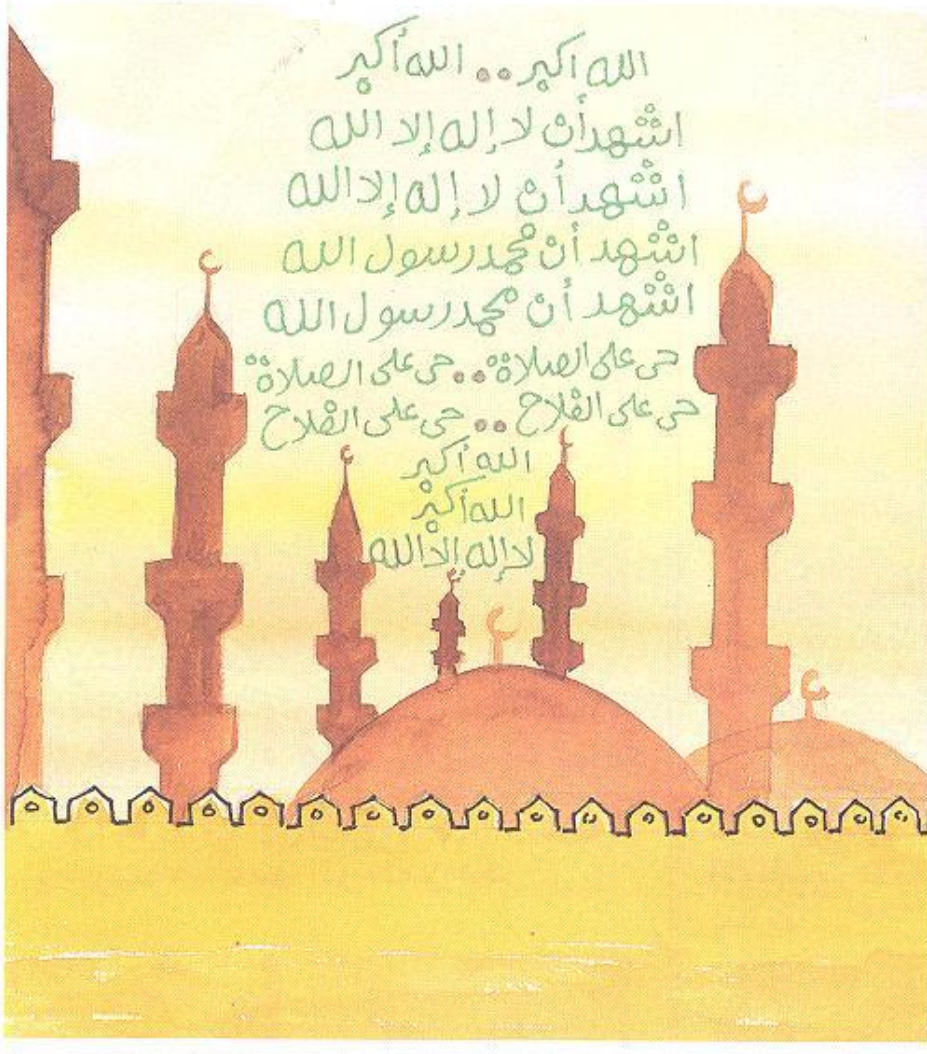 الله اكبر .. الله أكبر
اشهد أن لا إله إلا الله
اشهد أن لا إله إلا الله
اشهد أن محمد رسول الله
اشهد أن محمد رسول الله
حى على الصلاة .. حى على الصلاة
حى على الفلاح .. حى على الفلاح
الله أكبر
الله أكبر
لا إله إلا الله